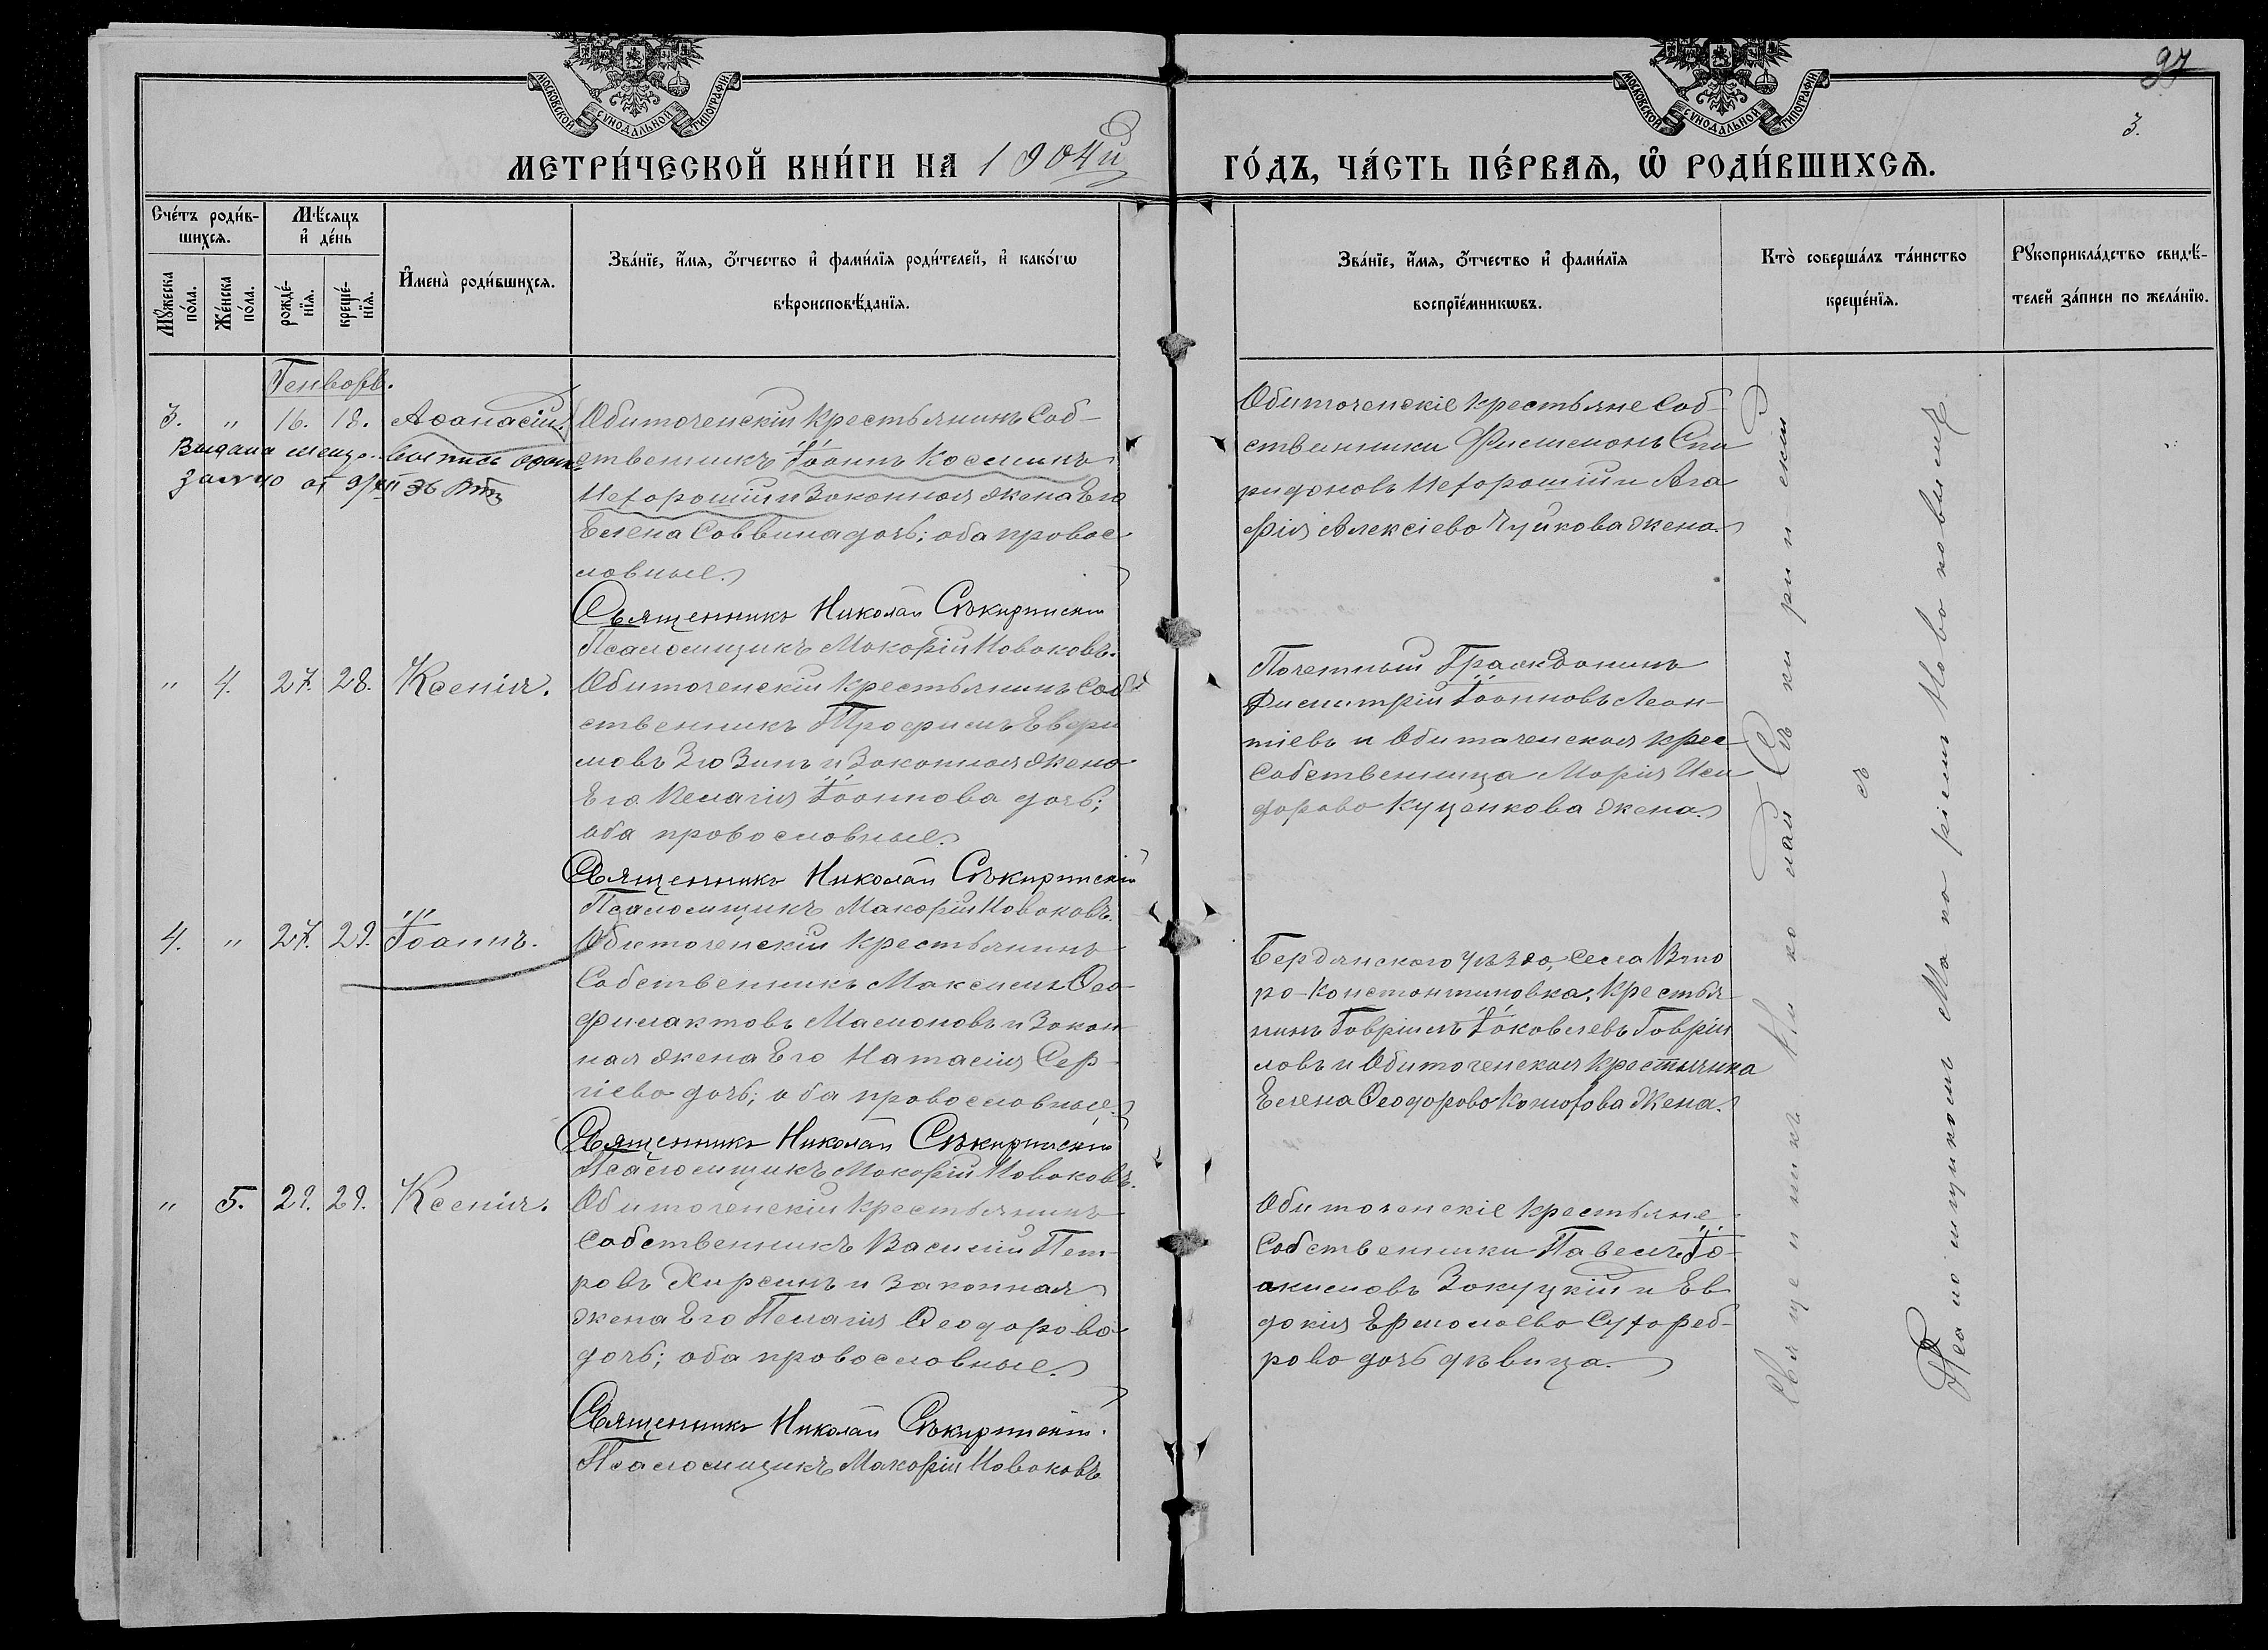 97
3.
МОСКОВСКОЙ СѴНОДАЛЬНОЙ ТИПОГРАФІИ
МОСКОВСКОЙ СѴНОДАЛЬНОЙ ТИПОГРАФІИ
МЕТРИ́ЧЕСКОЙ КНИ́ГИ НА 1904й ГО́ДЪ, ЧА́СТЬ ПЕ́РВАѦ, Ѡ҆ РОДИ́ВШИХСѦ.
Счéтъ роди́в-
шихсѧ.
Мꙋ́жеска пóла.
Жéнска пóла.
Мѣ́сѧцъ
и҆ дéнь
рождé-
нїѧ.
крещé-
нїѧ.
И҆менà роди́вшихсѧ.
Звáнїе, и҆́мѧ, ѻ҆́тчество и҆ фами́лїѧ роди́телей, и҆ какóгѡ
вѣроисповѣ́данїѧ.
Звáнїе, и҆́мѧ, ѻ҆́тчество и҆ фами́лїѧ
воспрїéмникѡвъ.
Ктò совершáлъ тáинство
крещéнїѧ.
Рꙋкоприклáдство свидѣ́-
телей зáписи по желáнїю.
Генворь.
3. " 16. 18. Аѳанасій.
Обиточенскій крестьянинъ Соб-
ственникъ Іоаннъ Косминъ
Нехорошій и Законная жена Его
Елена Саввина дочь; оба правос
лавные.
Священникъ Николай Сѣкиринскій
Псаломщикъ Макарій Новаковъ.
Обиточенскіе крестьяне Соб-
ственники Филимонъ Спи
ридоновъ Нехорошій и Ага
фія Алексіева Чуйкова жена.
Выдана
от 9/XII 36
" 4. 27. 28. Ксенія.
Обиточенскій крестьянинъ Соб
ственникъ Трофимъ Евфи
мовъ Зюзинъ и Законная жена
Его Пелагія Іоаннова дочь;
оба православные.
Священникъ Николай Сѣкиринскій
Псаломщикъ Макарій Новаковъ.
Почетный Гражданинъ
Димитрій Іоанновъ Леон-
тіевъ и Обиточенская крес
Собственница Марія Иси
дорова Куценкова жена.
4. " 27. 29. Іоаннъ.
Обиточенскій крестьянинъ
Собственникъ Максимъ Ѳео-
филактовъ Мамоновъ и Закон
ная жена Его Натасія Сер-
гіева дочь; оба православные.
Священникъ Николай Сѣкиринскій
Псаломщикъ Макарій Новаковъ.
Бердянскаго уѣзда, Села Вто
ро-Константиновка, крестья
нинъ Гавріилъ Іаковлевъ Гавріи
ловъ и Обиточенская крестьянка
Елена Ѳеодорова жена.
" 5. 29. 29. Ксенія.
Обиточенскій крестьянинъ
Собственникъ Василій Пет-
ровъ Хирсинъ и Законная
жена Его Пелагія Ѳеодорова
дочь; оба православные.
Священникъ Николай Сѣкиринскій.
Псаломщикъ Макарій Новаковъ
Обиточенскіе крестьяне
Собственники Павелъ Іо-
акимовъ Закуцкій и Ев
докія Ермолаева Сухореб-
рова дочь дѣвица.
Священникъ Николай Сѣкиринскій
съ
Псаломщикомъ Макаріемъ Новаковымъ